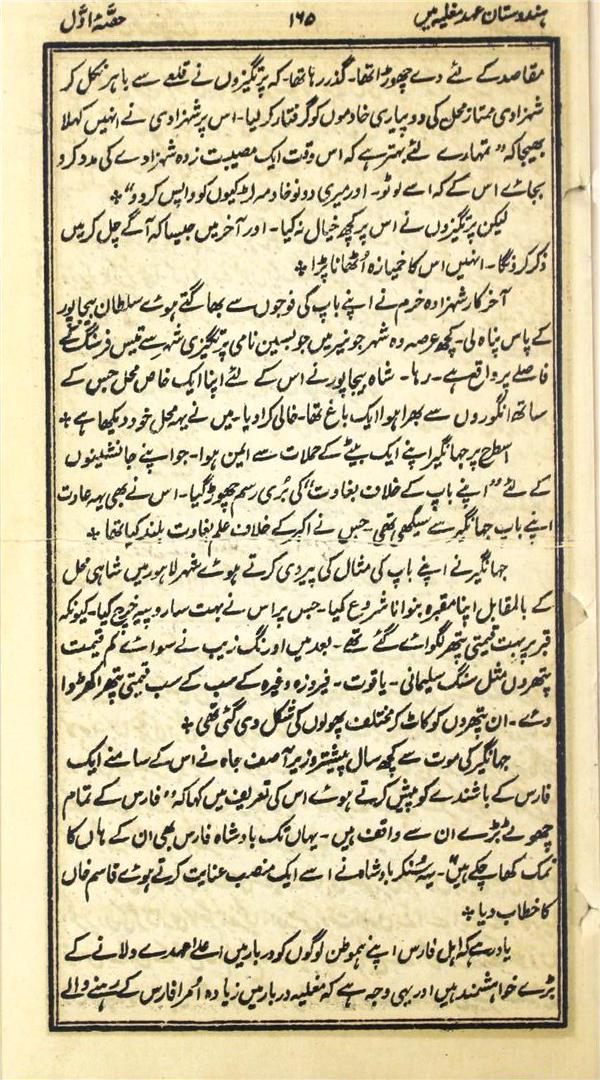 ہندوستان عہد مغلیہ میں ۱۶۵ حصّۂ اوّل
مقاصد کے لئے دے چھوڑا تھا۔ گذر رہا تھا۔ کہ پرتگیزوں نے قلعے سے باہر نکل کر
شہزادی ممتاز محل کی دو پیاری خادموں کو گرفتار کر لیا۔ اس پر شہزادی نے انہیں کہلا
بھیجا کہ "تمہارے لئے بہتر ہے کہ اس وقت ایک مصیبت زدہ شہزادے کی مدد کرو
بجاۓ اس کے کہ اسے لوٹو۔ اور میری دونو خادمہ لڑکیوں کو واپس کر دو" ٭
لیکن پرتگیزوں نے اس پر کچھ خیال نہ کیا۔ اور آخر میں جیسا کہ آگے چل کر میں
ذکر کرونگا۔ انہیں اس کا خمیازہ اُٹھانا پڑا ٭
آخر کار شہزادہ خرم نے اپنے باپ کی فوجوں سے بھاگتے ہوۓ سلطان بیجاپور
کے پاس پناہ لی۔ کچھ عرصہ وہ شہر جونیر میں جو بسین نامی پرتگیزی شہر سے تیس فرسنگ کے
فاصلے پر واقع ہے۔ رہا۔ شاہ بیجاپور نے اس کے لئے اپنا ایک خاص محل جس کے
ساتھ انگوروں سے بھرا ہوا ایک باغ تھا۔ خالی کرا دیا۔ میں نے یہہ محل خود دیکھا ہے ٭
اسطرح پر جہانگیر اپنے ایک بیٹے کے حملات سے ایمن ہوا۔ جو اپنے جانشینوں
کے لئے "اپنے باپ کے خلاف بغاوت" کی بُری رسم چھوڑ گیا۔ اس نے بھی یہہ عادت
اپنے باپ جہانگیر سے سیکھی تھی۔ جس نے اکبر کے خلاف علم بغاوت بلند کیا تھا ٭
جہانگیر نے اپنے باپ کی مثال کی پیروی کرتے ہوۓ شہر لاہور میں شاہی محل
کے بالمقابل اپنا مقبرہ بنوانا شروع کیا۔ جس پر اس نے بہت سا روپیہ خرچ کیا۔ کیونکہ
قبر پر بہت قیمتی پتھر لگواۓ گئے تھے۔ بعد میں اورنگ زیب نے سواۓ کم قیمت
پتھروں مثل سنگ سلیمانی۔ یاقوت۔ فیروزہ وغیرہ کے سب کے سب قیمتی پتھر اکھڑوا
دۓ۔ ان پتھروں کو کاٹ کر مختلف پھولوں کی شکل دی گئی تھی ٭
جہانگیر کی موت سے کچھ سال پیشتر وزیر آصف جاہ نے اس کے سامنے ایک
فارس کے باشندے کو پیش کرتے ہوۓ اس کی تعریف میں کہا کہ "فارس کے تمام
چھوٹے بڑے ان سے واقف ہیں۔ یہاں تک بادشاہ فارس بھی ان کے ہاں کا
نمک کھا چکے ہیں"۔ یہہ سُنکر بادشاہ نے اسے ایک منصب عنایت کرتے ہوۓ قاسم خاں
کا خطاب دیا ٭
یاد رہے کہ اہل فارس اپنے ہموطن لوگوں کو دربار میں اعلےٰ عہدے دلانے کے
بڑے خواہشمند ہیں اور یہی وجہ ہے کہ مغلیہ دربار میں زیادہ اُمرا فارس کے رہنے والے